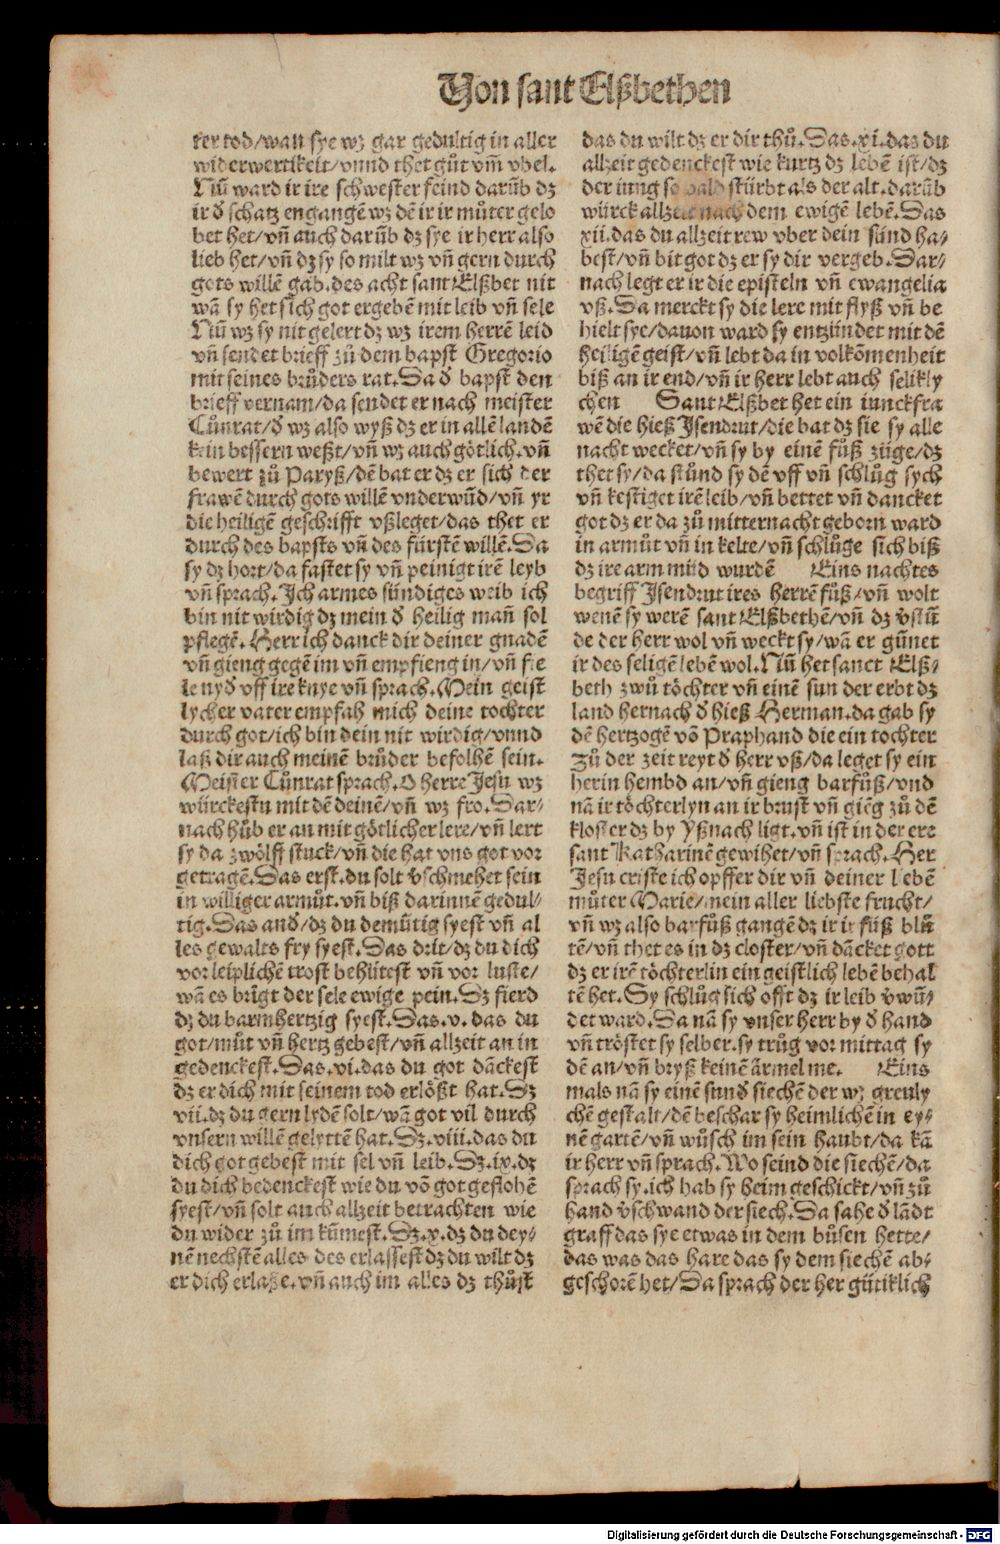 Von sant Elßbethen
ter tod/wan sye wz gar gedultig in aller
widerwertikeit/vnnd thet gůt vm̄ vbel.
Nū ward ir ire schwester feind darūb dz
ir ð schatz engangē wz dē ir ir můter gelo
bet het/vn̄ auch darūb dz sye ir herr also
lieb het/vn̄ dz sy so milt wz vn̄ gern durch
gots willē gab.des acht sant Elßbet nit
wā sy het sich got ergebē mit leib vn̄ sele
Nū wz sy nit gelert dz wz irem herrē leid
vn̄ sendet brieff zů dem bapst Gregorio
mit seines brůders rat.Da ð bapst den
brieff vernam/da sendet er nach meister
Cůnrat/ð wz also wyß dz er in allē landē
kein bessern weßt/vn̄ wz auch götlich.vn̄
bewert zů Paryß/dē bat er dz er sich der
frawē durch gots willē vnderwūd/vn̄ yr
die heiligē geschrifft vßleget/das thet er
durch des bapsts vn̄ des fürstē willē.Da
sy dz hort/da fastet sy vn̄ peinigt irē leyb
vn̄ sprach.Ich armes sündiges weib ich
bin nit wirdig dz mein ð heilig man̄ sol
pflegē.Herr ich danck dir deiner gnadē
vn̄ gieng gegē im vn̄ empfieng in/vn̄ fie
le nyð vff ire knye vn̄ sprach.Mein geist
lycher vater empfah mich deine tochter
durch got/ich bin dein nit wirdig/vnnd
laß dir auch meinē brůder befolhē sein.
Meister Cůnrat sprach.O herre Jesu wz
würckestu mit dē deinē/vn̄ wz fro.Dar⸗
nach hůb er an mit götlicher lere/vn̄ lert
sy da zwölff stuck/vn̄ die hat vns got vor
getragē.Das erst.du solt v̄schmehet sein
in williger armůt.vn̄ biß darinnē gedul⸗
tig.Das anð/dz du demütig syest vn̄ al
les gewalts fry syest.Das drit/dz du dich
vor leiplichē trost behütest vn̄ vor luste/
wā es brīgt der sele ewige pein.Dz fierd
dz du barmhertzig syest.Das.v. das du
got/můt vn̄ hertz gebest/vn̄ allzeit an in
gedenckest.Das.vi.das du got dāckest
dz er dich mit seinem tod erlößt hat.Dz
vii.dz du gern lydē solt/wā got vil durch
vnsern willē gelyttē hat.Dz.viii.das du
dich got gebest mit sel vn̄ leib.Dz.ix.dz
du dich bedenckest wie du vō got geflohē
syest/vn̄ solt auch allzeit betrachten wie
du wider zů im kūmest.Dz.x.dz du dey⸗
nē nechstē alles des erlassest dz du wilt dz
er dich erlaße.vn̄ auch im alles dz thůst
das du wilt dz er dir thů.Das.xi.das du
allzeit gedenckest wie kurtz dz lebē ist/dz
der iung so bald stürbt als der alt.darūb
würck allzeit nach dem ewigē lebē.Das
xii.das du allzeit rew vber dein sünd ha⸗
best/vn̄ bit got dz er sy dir vergeb.Dar⸗
nach legt er ir die episteln vn̄ ewangelia
vß.Da merckt sy die lere mit flyß vn̄ be
hielt sye/dauon ward sy entzündet mit dē
heiligē geist/vn̄ lebt da in volkōmenheit
biß an ir end/vn̄ ir herr lebt auch selikly
chen Sant Elßbet het ein iunckfra
wē die hieß Jsendrut/die bat dz sie sy alle
nacht wecket/vn̄ sy by einē fůß züge/dz
thet sy/da stůnd sy dē vff vn̄ schlůg sych
vn̄ kestiget irē leib/vn̄ bettet vn̄ dancket
got dz er da zů mitternacht geborn ward
in armůt vn̄ in kelte/vn̄ schlůge sich biß
dz ire arm müd wurdē Eins nachtes
begriff Jsendrut ires herrē fůß/vn̄ wolt
wenē sy werē sant Elßbethē/vn̄ dz v̄stū
de der herr wol vn̄ weckt sy/wā er gūnet
ir des seligē lebē wol.Nū het sanct Elß⸗
beth zwů töchter vn̄ einē sun der erbt dz
land hernach ð hieß Herman.da gab sy
dē hertzogē vō Praphand die ein tochter
Zů der zeit reyt ð herr vß/da leget sy ein
herin hembd an/vn̄ gieng barfůß/vnd
nā ir töchterlyn an ir brust vn̄ giēg zů dē
kloster dz by Yßnach ligt.vn̄ ist in der ere
sant Katharinē gewihet/vn̄ sprach.Her
Jesu criste ich opffer dir vn̄ deiner lebē
můter Marie/mein aller liebste frucht/
vn̄ wz also barfůß gangē dz ir ir füß blů
tē/vn̄ thet es in dz closter/vn̄ dācket gott
dz er irē töchterlin ein geistlich lebē behal
tē het.Sy schlůg sich offt dz ir leib v̄wū⸗
det ward.Da nā sy vnser herr by ð hand
vn̄ tröstet sy selber.sy trůg vor mittag sy
dē an/vn̄ bryß keinē ārmel me. Eins
mals nā sy einē sunð siechē der wz greuly
chē gestalt/dē beschar sy heimlichē in ey⸗
nē gartē/vn̄ wůsch im sein haubt/da kā
ir herr vn̄ sprach.Wo seind die siechē/da
sprach sy.ich hab sy heim geschickt/vn̄ zů
hand v̄schwand der siech.Da sahe ð lādt
graff das sye etwas in dem bůsen hette/
das was das hare das sy dem siechē ab⸗
geschorē het/Da sprach der her gütiklich
Digitalisierung gefördert durch die Deutsche Forschungsgemeinschaft - DFG